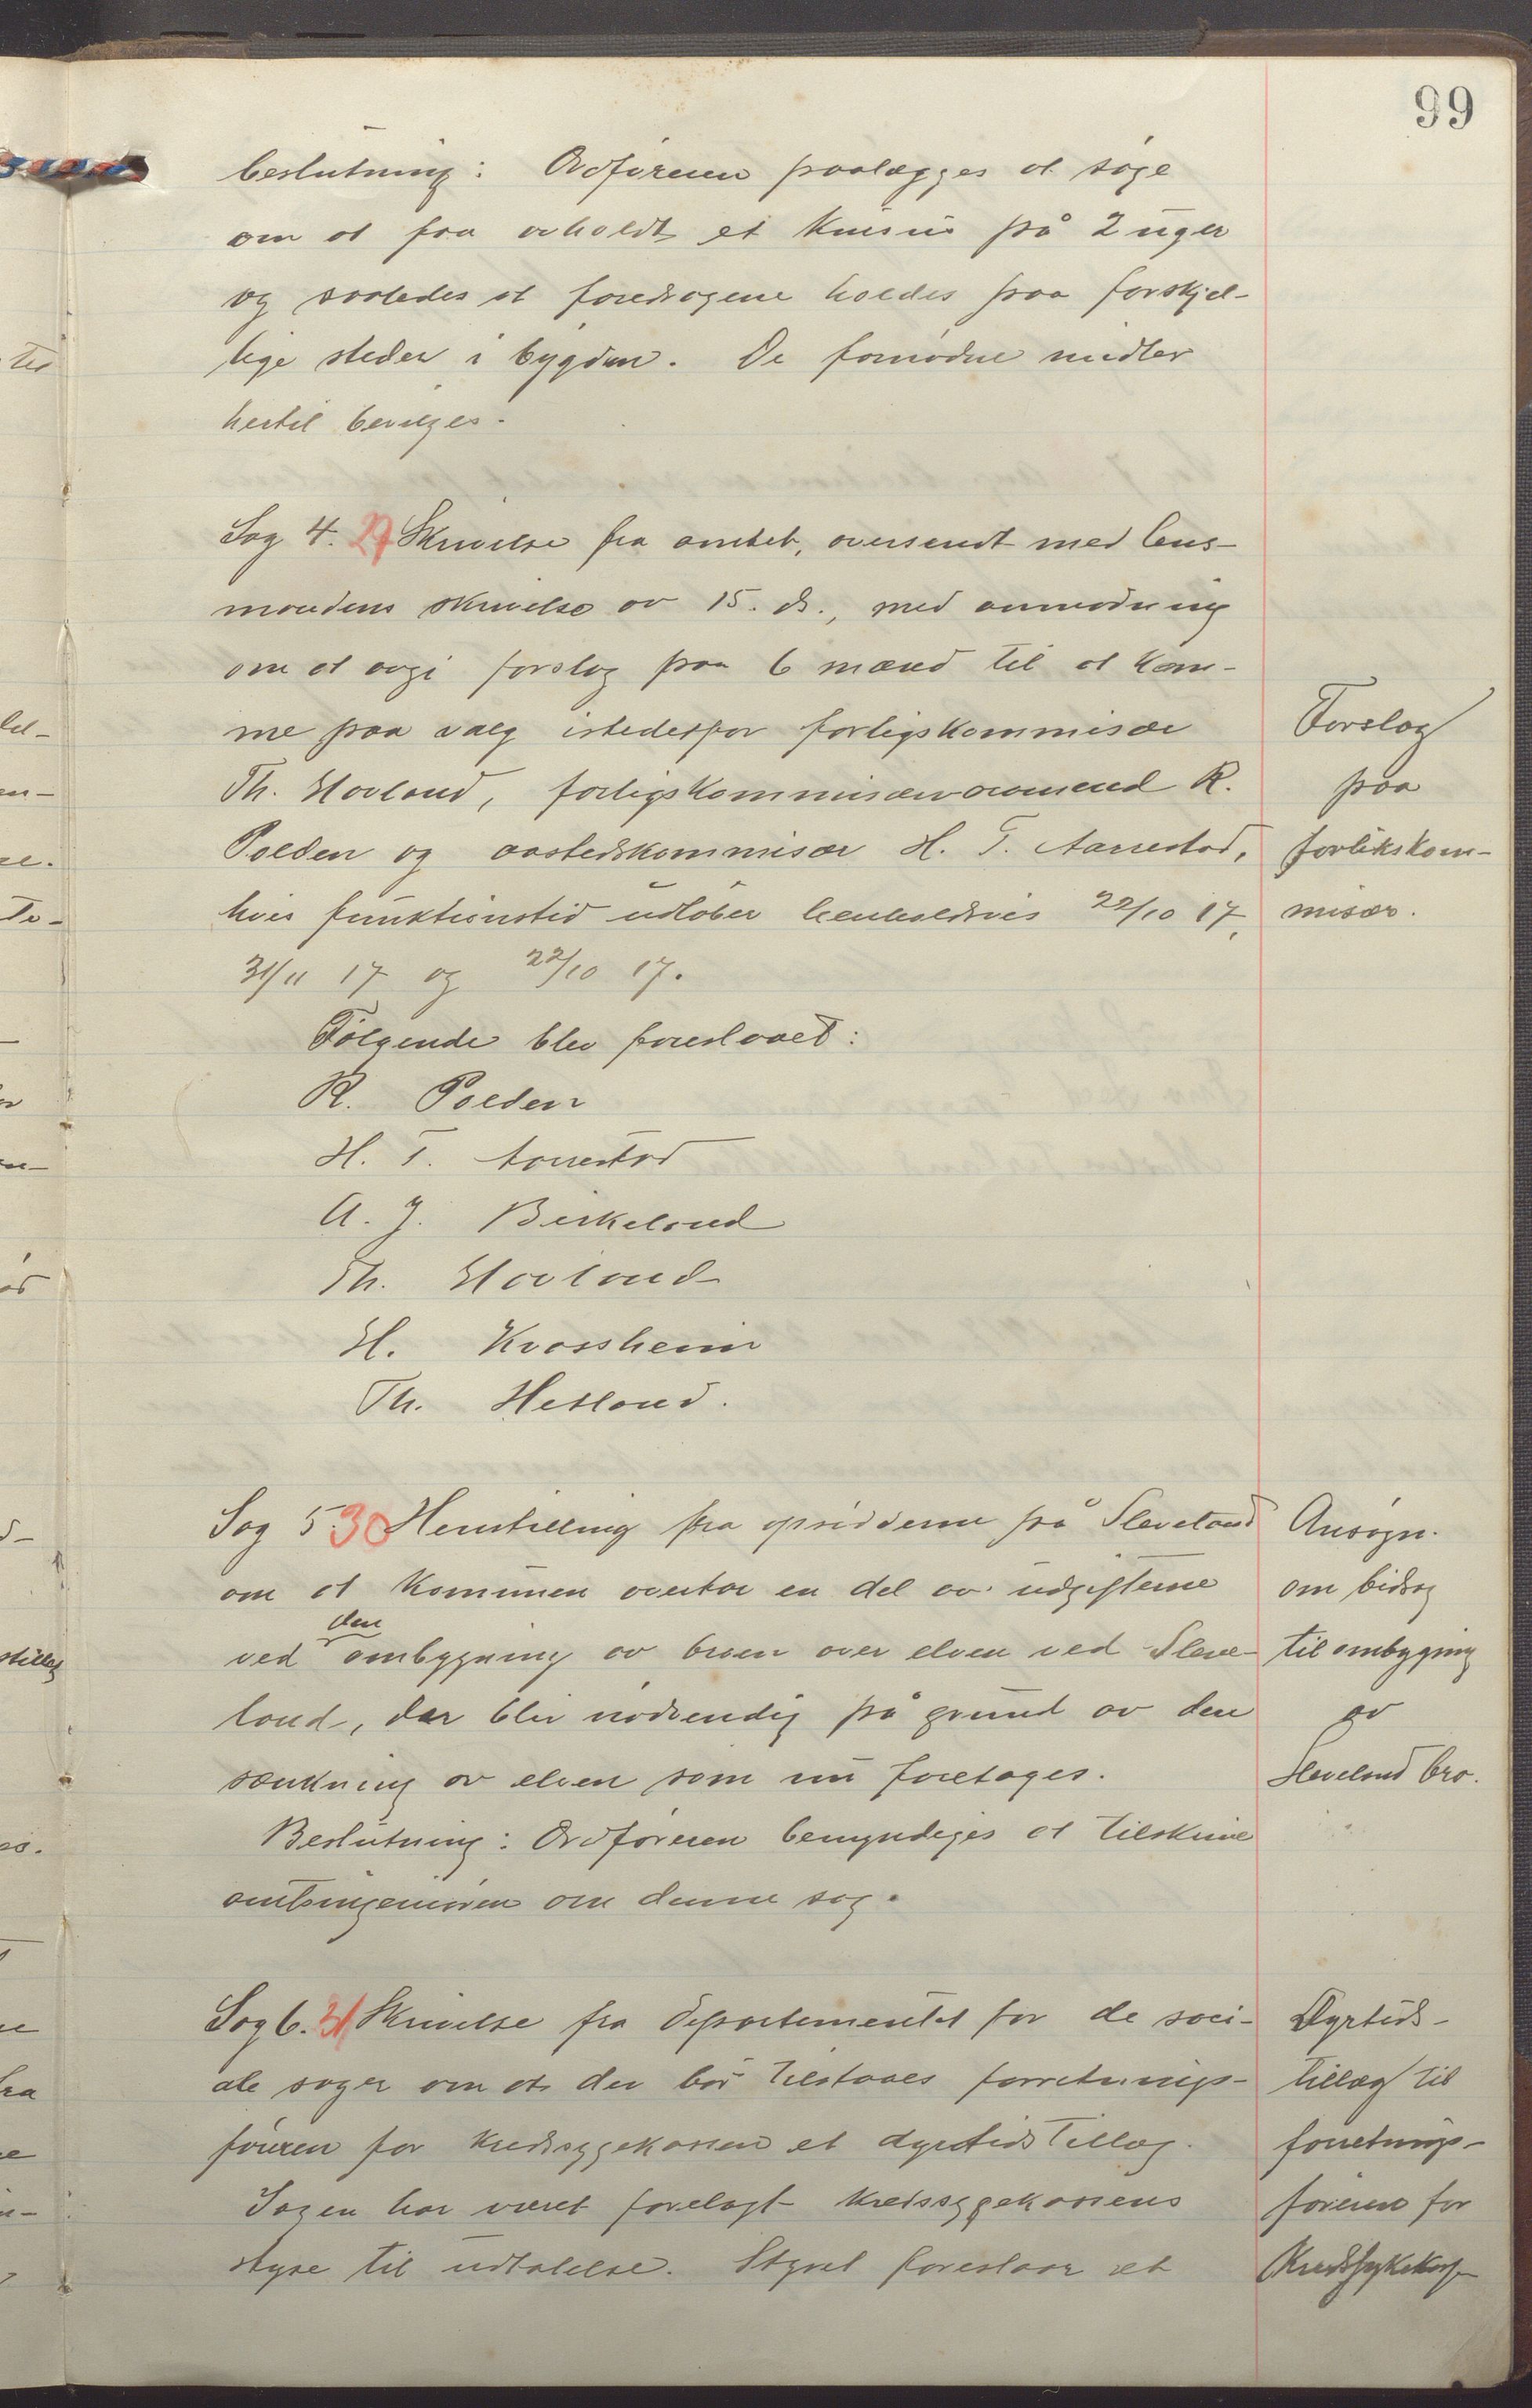 99
beslutning: Ordføreren paalægges at søge
om at faa avholdt et kursus på 2 uger
og saaledes at foredragene holdes paa forskjel-
lige steder i bygden. De fornødne midler
hertil bevilges.
Sag 4. 29 Skrivelse fra amtet, oversendt med lens-
mandens skrivelse av 15. ds., med anmodning
om at avgi forslag paa 6 mænd til at kom-
me paa valg istedetfor forligskommisær
Th. Hovland, forligskommisærvaramand R.
Polden og aastedskommisær H. T. Aarrestad,
hvis funktionstid utløber henholdsvis 22/10 17,
31/11 17 og 22/10 17.
Følgende blev foreslaaet:
R. Polden
H. T. Aarrestad
A. J. Birkeland
Th. Hovland
H. Krossheim
Th. Hetland.
Forslag
paa
forlikskom-
misær.
Sag 5. 30 Henstilling fra opsidderne på Sleveland
om at kommunen overtar en del av udgifterne
ved den ombygning av broen over elven ved Sleve-
land, der blir nødvendig på grund av den
sænkning av elven som nu foretages.
Beslutning: Ordføreren bemyndiges at tilskrive
amtsingeniøren om denne sag.
Ansøgn.
om bidrag
til ombygning
av
Sleveland bro.
Sag 6. 31 Skrivelse fra Departementet for de soci-
ale sager om at der bør tilstaaes forretnings-
føreren for kredssygekassen et dyrtidstillæg.
Sagen har været forelagt kredssygekassens
styre til udtalelse. Styret foreslaar et
Dyrtids-
tillæg til
forretnings-
føreren for
Kredssykekas-